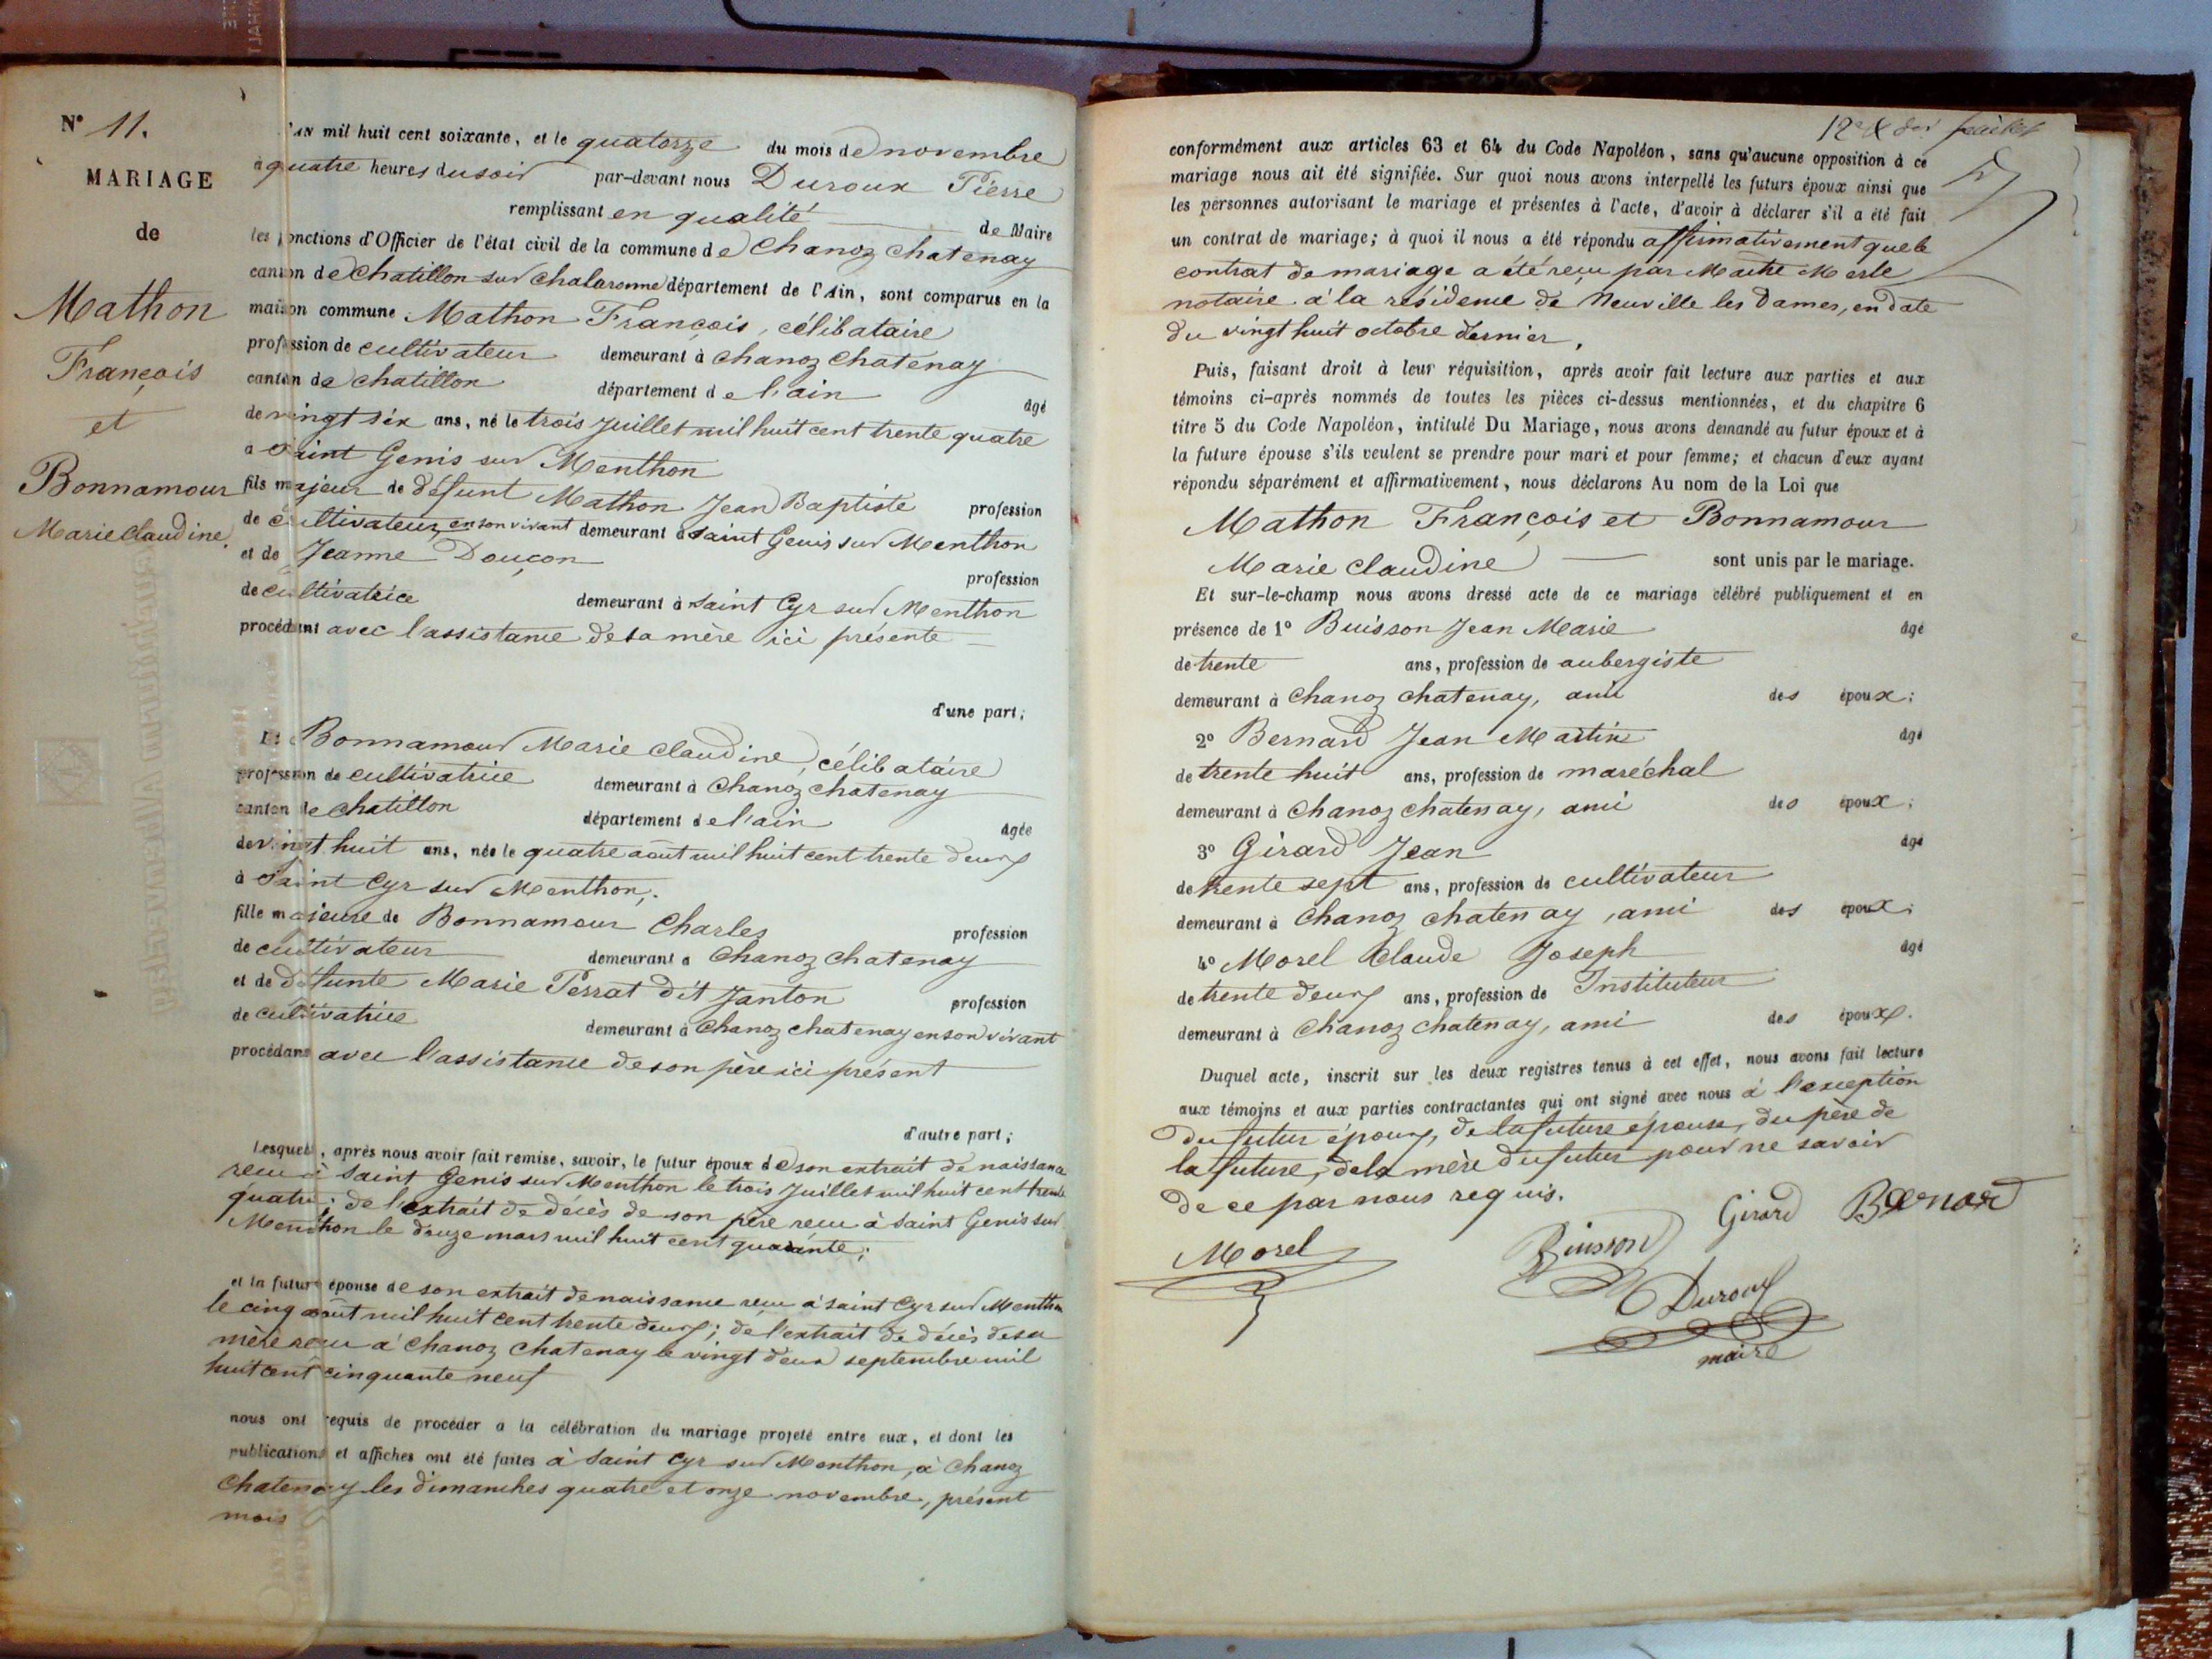 N° 11.
MARIAGE
de
Mathon
François
et
Bonnamour
Marie Claudine.
L'AN mil huit cent soixante, et le quatorze du mois de novembre
à quatre heures du soir par-devant nous Duroux Pierre
remplissant en qualité de Maire
les fonctions d'Officier de l'état civil de la commune de Chanoz Chatenay
canton de Chatillon sur Chalaronne département de l'Ain, sont comparus en la
maison commune Mathon François, célibataire
profession de cultivateur demeurant à Chanoz Chatenay
canton de Chatillon département de l'ain âgé
de vingt six ans, né le trois Juillet mil huit cent trente quatre
à Saint Genis sur Menthon
fils majeur de défunt Mathon Jean Baptiste profession
de cultivateur, en son vivant demeurant à Saint Genis sur Menthon
et de Jeanne Douçon profession
de cultivatrice demeurant à Saint Cyr sur Menthon
procédant avec l'assistance de sa mère ici présente
d'une part;
Et Bonnamour Marie Claudine, célibataire
profession de cultivatrice demeurant à Chanoz Chatenay
canton de Chatillon département de l'ain âgée
de vingt huit ans, née le quatre août mil huit cent trente deux
à Saint Cyr sur Menthon,
fille majeure de Bonnamour Charles profession
de cultivateur demeurant à Chanoz Chatenay
et de défunte Marie Perrat dit Janton profession
de cultivatrice demeurant à Chanoz Chatenay en son vivant
procédant avec l'assistance de son père ici présent
d'autre part;
Lesquels, après nous avoir fait remise, savoir, le futur époux de son extrait de naissance
reçu à Saint Genis sur Menthon le trois Juillet mil huit cent trente
quatre; de l'extrait de décès de son père reçu à Saint Genis sur
Menthon le douze mars mil huit cent quarante;
et la future épouse de son extrait de naissance reçu à Saint Cyr sur Menthon
le cinq août mil huit cent trente deux; de l'extrait de décès de sa
mère reçu à Chanoz Chatenay le vingt deux septembre mil
huit cent cinquante neuf
nous ont requis de procéder à la célébration du mariage projeté entre eux, et dont les
publications et affiches ont été faites à Saint Cyr sur Menthon, à Chanoz
Chatenay les dimanches quatre et onze novembre, présent
mois
12e feuillet
conformément aux articles 63 et 64 du Code Napoléon, sans qu'aucune opposition à ce
mariage nous ait été signifiée. Sur quoi nous avons interpellé les futurs époux ainsi que
les personnes autorisant le mariage et présentes à l'acte, d'avoir à déclarer s'il a été fait
un contrat de mariage; à quoi il nous a été répondu affirmativement que le
contrat de mariage a été reçu par Maître Merle
notaire à la résidence de Neuville les Dames, en date
du vingt huit octobre dernier.
Puis, faisant droit à leur réquisition, après avoir fait lecture aux parties et aux
témoins ci-après nommés de toutes les pièces ci-dessus mentionnées, et du chapitre 6
titre 5 du Code Napoléon, intitulé Du Mariage, nous avons demandé au futur époux et à
la future épouse s'ils veulent se prendre pour mari et pour femme; et chacun d'eux ayant
répondu séparément et affirmativement, nous déclarons Au nom de la Loi que
Mathon François et Bonnamour
Marie Claudine sont unis par le mariage.
Et sur-le-champ nous avons dressé acte de ce mariage célébré publiquement et en
présence de 1° Buisson Jean Marie âgé
de trente ans, profession de aubergiste
demeurant à Chanoz Chatenay, ami des époux;
2° Bernard Jean Martin âgé
de trente huit ans, profession de maréchal
demeurant à Chanoz Chatenay, ami des époux;
3° Girard Jean âgé
de trente sept ans, profession de cultivateur
demeurant à Chanoz Chatenay, ami des époux;
4° Morel Claude Joseph âgé
de trente deux ans, profession de Instituteur
demeurant à Chanoz Chatenay, ami des époux.
Duquel acte, inscrit sur les deux registres tenus à cet effet, nous avons fait lecture
aux témoins et aux parties contractantes qui ont signé avec nous à l'exception
du futur époux, de la future épouse, du père de
la future, de la mère du futur pour ne savoir
de ce par nous requis.
Girard Bernard
Morel Buisson
Duroux
maire